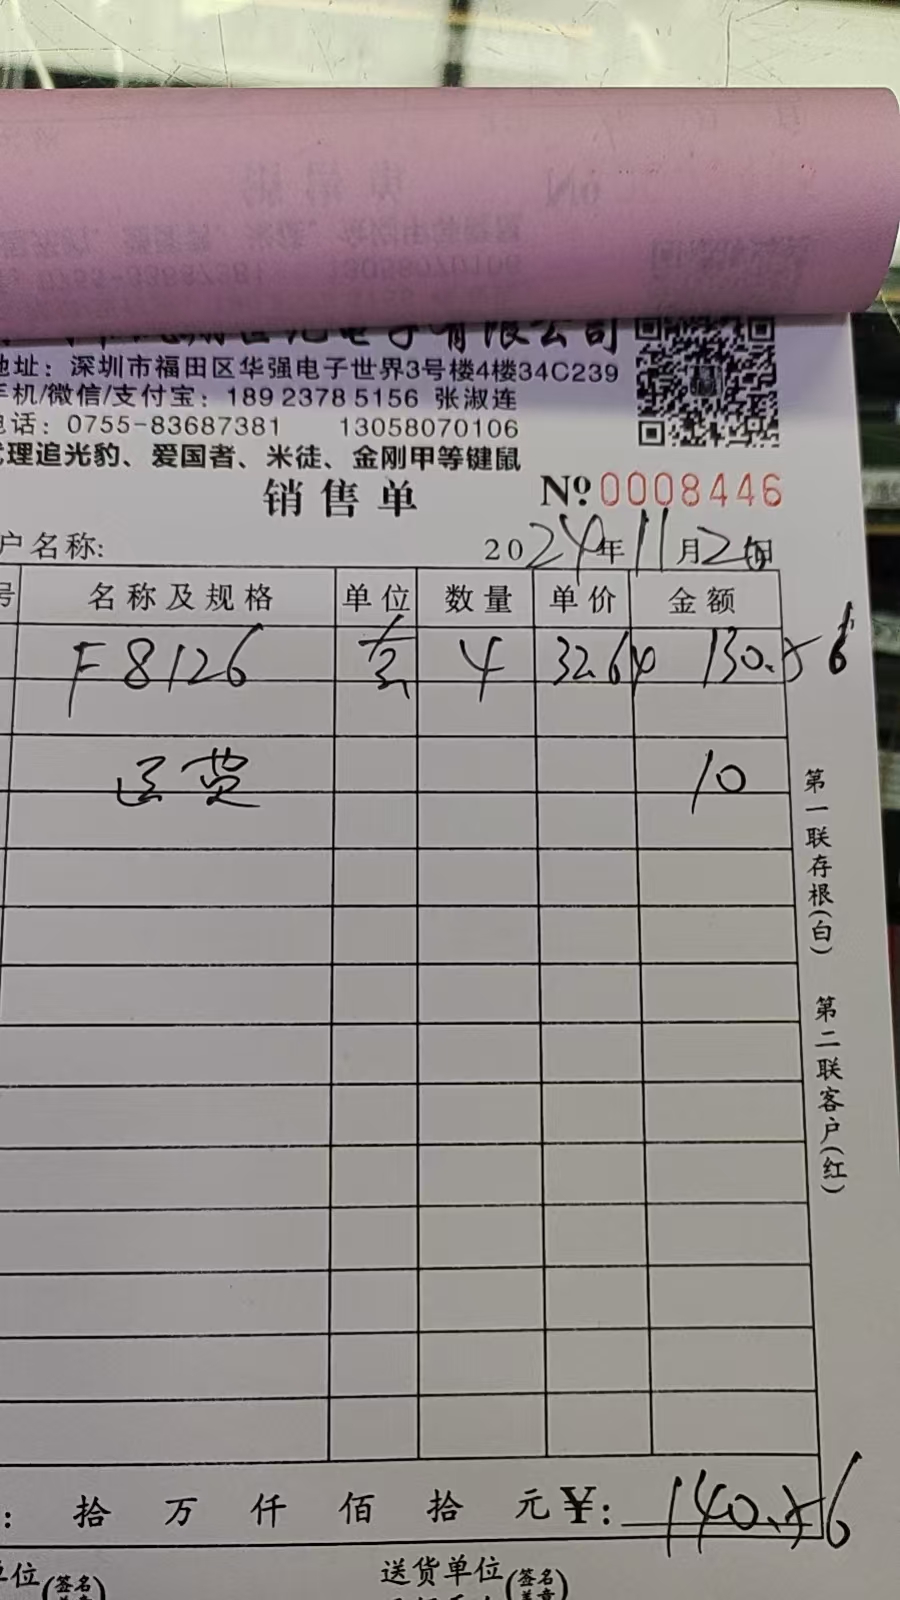 电子有限公司
地址：深圳市福田区华强电子世界3号楼4楼34C239
手机/微信/支付宝：189 2378 5156 张淑连
电话：0755-83687381 13058070106
代理追光豹、爱国者、米徒、金刚甲等键鼠
销售单 № 0008446
户名称: 2024年11月2 日
号 名称及规格 单位 数量 单价 金额
F8126 套 4 32.64 130.56
运费 10
第一联存根(白) 第二联客户(红)
: 拾 万 仟 佰 拾 元 ¥: 140.56
单位(签名 送货单位(签名